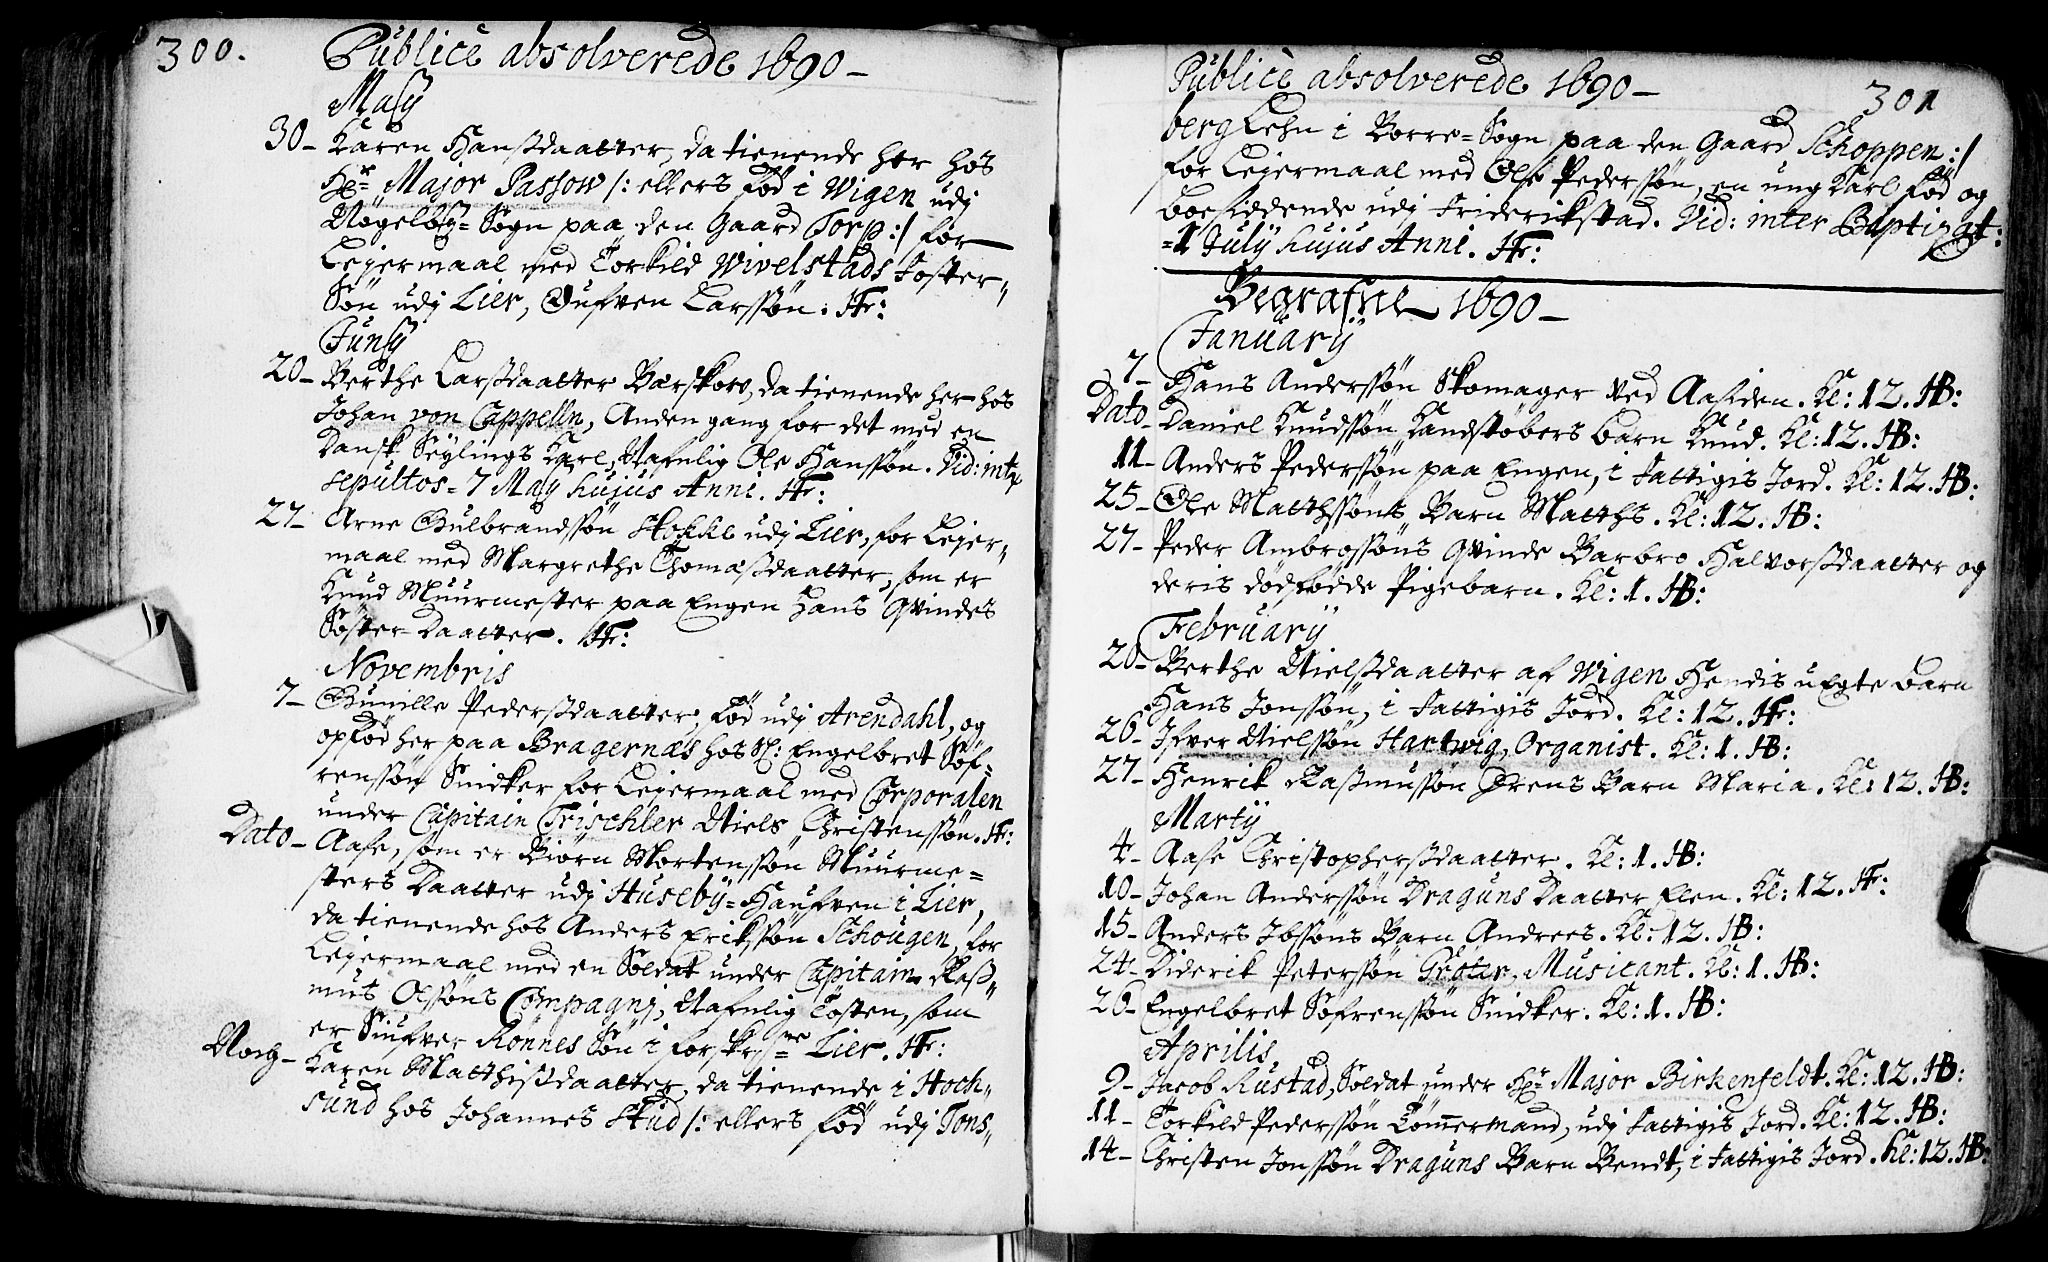 300.
Publicè absolverede 1690 –
Maÿ
30 – Karen Hanßdaatter, da tienende her hos
Hr. Major Passow /: ellers fød i Wigen udj
Nøgelbÿ = Sogn paa den Gaard Torp :/ for
Lejermaal med Torkild Wivelstads Foster-
Søn udj Lier, Gufven Larssøn. HF:
Junÿ
20 – Berthe Larßdaatter Bærskow, da tienende her hos
Johan von Cappelln, Anden gang for det med en
Dansk Seÿlings Karl, Nafnlig Ole Hanssøn. Vid: inter
sepultos = 7 Maÿ hujus Anni. HF:
27 – Arne Gulbrandssøn Stokke udj Lier, for Lejer-
maal med Margrethe Thomæßdaatter, som er
Knud Muurmester paa Engen Hans Qvindes
Søster-Daatter. HF:
Novembris
7 – Gunille Pederßdaatter, fød udj Arendahl, og
opfød her paa Bragernæs hos Sl: Engelbret Søf-
renssøn Snidker for Lejermaal med Corporalen
under Capitain Trischler Niels Christenssøn. HF:
Dato – Aase, som er Biørn Mortenssøn Muurme-
sters Daatter udj Husebÿ = Haufven i Lier,
da tienende hos Anders Erikssøn Schougen, for
Lejermaal med en Soldat under Capitain Raß-
mus Olssøns Compagnj, Nafnlig Tosten, som
er Siufver Rønnes Søn i forskrefne Lier. HF:
Noch – Karen Matthißdaatter, da tienende i Hoch-
sund hos Johannes Stud /: ellers fød udj Tøns-
Publicè absolverede 1690 –
301
berg Lehn i Borre = Sogn paa den Gaard Schoppen :/
for Lejermaal med Ole Pederssøn, en ung Karl fød og
boesiddende udj Friderikstad. Vid: inter Baptizat:
= 1 Julÿ hujus Anni. HF:
Begrafne 1690 –
Januarÿ
7 – Hans Anderssøn Skomager ved Aasiden. Kl: 12. HB:
Dato – Daniel Knudssøn Kandstøbers barn Knud. Kl: 12. HB:
11 – Anders Pederssøn paa Engen, i Fattigis Jord. Kl: 12. HB:
25 – Ole Matthssøns Barn Matths. Kl: 12. HB:
27 – Peder Ambrossøns Qvinde Barbro Halvorßdaatter og
deris dødfødde Pigebarn. Kl: 1. HB:
Februarÿ
20 – Berthe Nielßdaatter af Wigen Hendis uEgte barn
Hans Jonssøn, i Fattigis Jord. Kl: 12. HF:
26 – Ifver Nielssøn Hartwig, Organist. Kl: 1. HB:
27 – Henrik Raßmussøn Ørens Barn Maria. Kl: 12. HB:
Martÿ
4 – Aase Christopherßdaatter. Kl: 1. HB:
10 – Johan Anderssøn Draguns Daatter Elen. Kl: 12. HF:
15 – Anders Ibssøns Barn Andrees. Kl: 12. HB:
24 – Diderik Peterssøn Gröter, Musicant. Kl: 1. HB:
26 – Engelbret Søfrenssøn Snidker. Kl: 1. HB:
Aprilis.
9 – Jacob Rustad, Soldat under Hr. Major Birkenfeldt. Kl: 12. HB:
11 – Torkild Pederssøn Tømmermand, udj Fattigis Jord. Kl: 12. HB:
14 – Christen Jonssøn Draguns Barn Bendt, i Fattigis Jord. Kl: 12. HB: